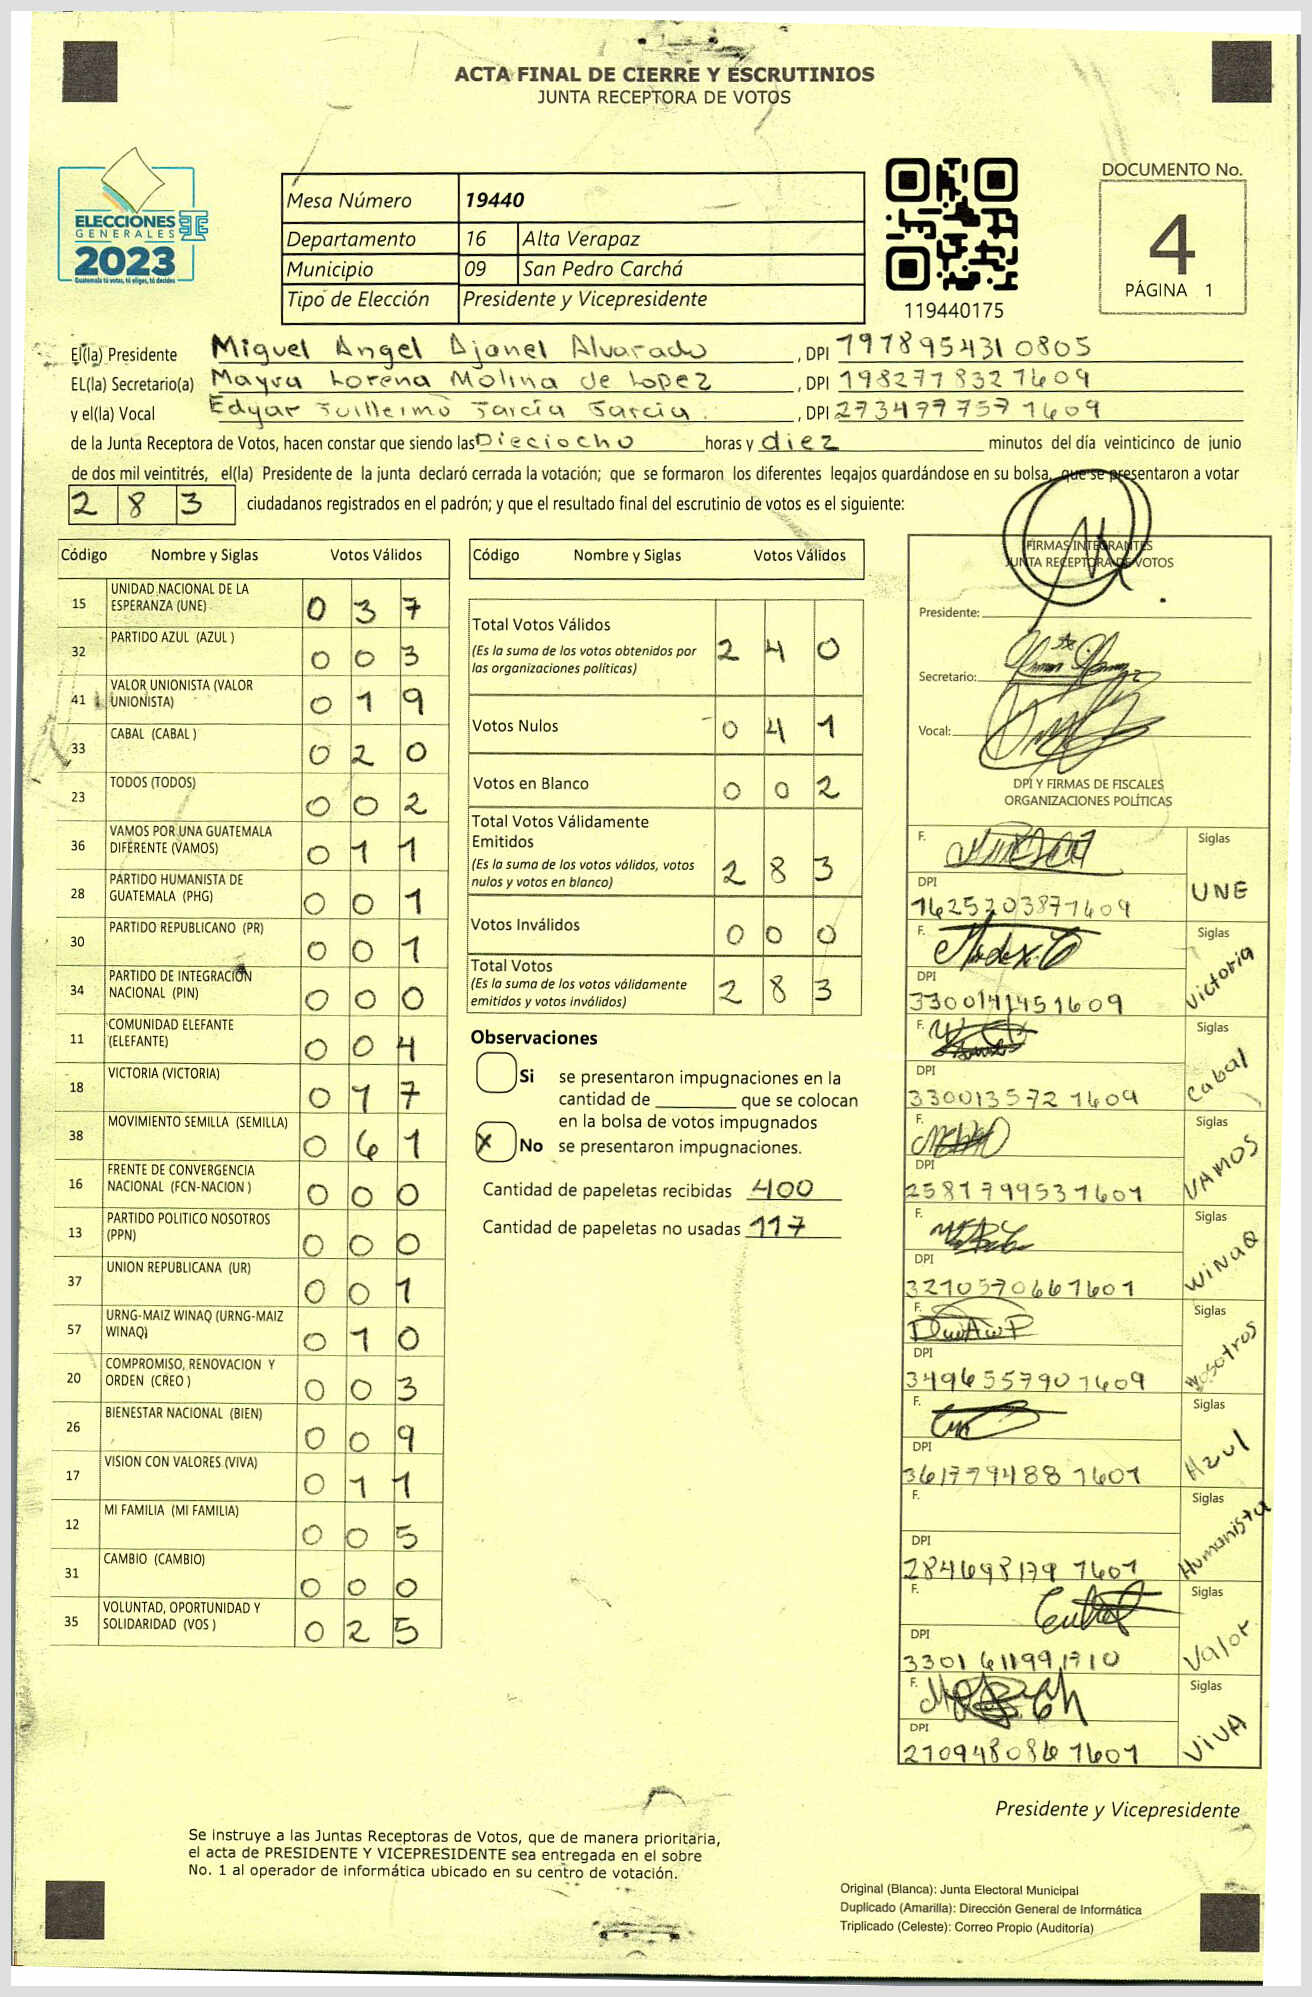 ACTA FINAL DE CIERRE Y ESCRUTINIOS
JUNTA RECEPTORA DE VOTOS
ELECCIONES
GENERALES
2023
Guatemala tú votas, tú eliges, tú decides
Mesa Número 19440
Departamento 16 Alta Verapaz
Municipio 09 San Pedro Carchá
Tipo de Elección Presidente y Vicepresidente
119440175
DOCUMENTO No.
4
PÁGINA 1
El(la) Presidente Miguel Angel Ajanel Alvarado, DPI 1978954310805
EL(la) Secretario(a) Mayra Lorena Molina de Lopez, DPI 1982778321609
y el(la) Vocal Edgar Guillermo García García., DPI 2734777571609
de la Junta Receptora de Votos, hacen constar que siendo las Dieciocho horas y diez minutos del día veinticinco de junio
de dos mil veintitrés, el(la) Presidente de la junta declaró cerrada la votación; que se formaron los diferentes legajos guardándose en su bolsa, que se presentaron a votar
283 ciudadanos registrados en el padrón; y que el resultado final del escrutinio de votos es el siguiente:
Código Nombre y Siglas Votos Válidos
15 UNIDAD NACIONAL DE LA ESPERANZA (UNE) 037
32 PARTIDO AZUL (AZUL ) 003
41 VALOR UNIONISTA (VALOR UNIONISTA) 019
33 CABAL (CABAL ) 020
23 TODOS (TODOS) 002
36 VAMOS POR UNA GUATEMALA DIFERENTE (VAMOS) 011
28 PARTIDO HUMANISTA DE GUATEMALA (PHG) 001
30 PARTIDO REPUBLICANO (PR) 001
34 PARTIDO DE INTEGRACIÓN NACIONAL (PIN) 000
11 COMUNIDAD ELEFANTE (ELEFANTE) 004
18 VICTORIA (VICTORIA) 017
38 MOVIMIENTO SEMILLA (SEMILLA) 061
16 FRENTE DE CONVERGENCIA NACIONAL (FCN-NACION ) 000
13 PARTIDO POLITICO NOSOTROS (PPN) 000
37 UNION REPUBLICANA (UR) 001
57 URNG-MAIZ WINAQ (URNG-MAIZ WINAQ) 010
20 COMPROMISO, RENOVACION Y ORDEN (CREO ) 003
26 BIENESTAR NACIONAL (BIEN) 009
17 VISION CON VALORES (VIVA) 011
12 MI FAMILIA (MI FAMILIA) 005
31 CAMBIO (CAMBIO) 000
35 VOLUNTAD, OPORTUNIDAD Y SOLIDARIDAD (VOS ) 025
Código Nombre y Siglas Votos Válidos
Total Votos Válidos 240
(Es la suma de los votos obtenidos por
las organizaciones políticas)
Votos Nulos 041
Votos en Blanco 002
Total Votos Válidamente
Emitidos 283
(Es la suma de los votos válidos, votos
nulos y votos en blanco)
Votos Inválidos 000
Total Votos 283
(Es la suma de los votos válidamente
emitidos y votos inválidos)
Observaciones
Si se presentaron impugnaciones en la
cantidad de ________ que se colocan
en la bolsa de votos impugnados
X No se presentaron impugnaciones.
Cantidad de papeletas recibidas 400
Cantidad de papeletas no usadas 117
FIRMAS INTEGRANTES
JUNTA RECEPTORA DE VOTOS
Presidente:
Secretario:
Vocal:
DPI Y FIRMAS DE FISCALES
ORGANIZACIONES POLÍTICAS
F. Siglas UNE
DPI 1625203871609
F. Siglas Victoria
DPI 3300141451609
F. Siglas Cabal
DPI 3300135721609
F. Siglas VAMOS
DPI 2581799531601
F. Siglas WINAQ
DPI 3210570661601
F. Siglas Nosotros
DPI 3496557901609
F. Siglas Azul
DPI 3617794881601
F. Siglas Humanista
DPI 2846981791601
F. Siglas Valor
DPI 3301611991710
F. Siglas VIVA
DPI 2109480861601
Presidente y Vicepresidente
Se instruye a las Juntas Receptoras de Votos, que de manera prioritaria,
el acta de PRESIDENTE Y VICEPRESIDENTE sea entregada en el sobre
No. 1 al operador de informática ubicado en su centro de votación.
Original (Blanca): Junta Electoral Municipal
Duplicado (Amarilla): Dirección General de Informática
Triplicado (Celeste): Correo Propio (Auditoría)